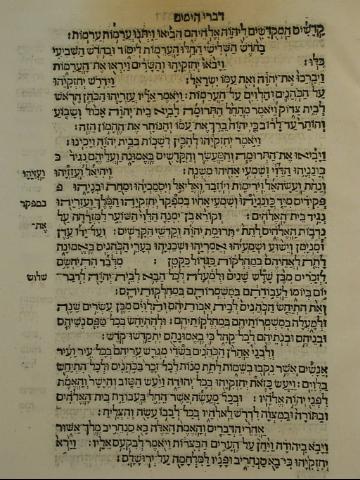 קדשים המקדשים ליהוה אלהיהם הביאו ויתנו ערמות ערמות׃
בחדש השלישי החלו הערמות ליסוד ובחדש השביעי
כלו׃ ויבאו יחזקיהו והשרים ויראו את הערמות
ויברכו את יהוה ואת עמו ישראל׃ וידרש יחזקיהו
על הכהנים והלוים על הערמות׃ ויאמר אליו עזריהו הכהן הראש
לבית צדוק ויאמר מהחל התרומה לביא בית יהוה אכול ושבוע
והותר עד לרוב כי יהוה ברך את עמו והנותר את ההמון הזה׃
ויאמר יחזקיהו להכין לשכות בבית יהוה ויכינו׃
ויביאו את התרומה והמעשר והקדשים באמונה ועליהם נגיד
כונניהו הלוי ושמעי אחיהו משנה׃ ויחיאל ועזזיהו
ונחת ועשהאל וירימות ויוזבד ואליאל ויסמכיהו ומחת ובניהו
פקידים מיד כונניהו ושמעי אחיהו במפקד יחזקיהו המלך ועזריהו
נגיד בית האלהים׃ וקורא בן ימנה הלוי השוער למזרחה על
נדבות האלהים לתת תרומת יהוה וקדשי הקדשים׃ ועל ידו עדן
ומנימין וישוע ושמעיהו אמריהו ושכניהו בערי הכהנים באמונה
לתת לאחיהם במחלקות כגדול כקטן׃ מלבד התיחשם
לזכרים מבן שלש שנים ולמעלה לכל הבא לבית יהוה לדבר
יום ביומו לעבודתם במשמרותם במחלקותיהם׃
ואת התיחש הכהנים לבית אבותיהם והלוים מבן עשרים שנה
ולמעלה במשמרותיהם במחלקותיהם׃ ולהתיחש בכל טפם נשיהם
ובניהם ובנותיהם לכל קהל כי באמונתם יתקדשו קדש׃
ולבני אהרן הכהנים בשדי מגרש עריהם בכל עיר ועיר
אנשים אשר נקבו בשמות לתת מנות לכל זכר בכהנים ולכל התיחש
בלוים׃ ויעש כזאת יחזקיהו בכל יהודה ויעש הטוב והישר והאמת
לפני יהוה אלהיו׃ ובכל מעשה אשר החל בעבודת בית האלהים
ובתורה ובמצוה לדרש לאלהיו בכל לבבו עשה והצליח׃
אחרי הדברים והאמת האלה בא סנחריב מלך אשור
ויבא ביהודה ויחן על הערים הבצרות ויאמר לבקעם אליו׃ וירא
יחזקיהו כי בא סנחריב ופניו למלחמה על ירושלם׃